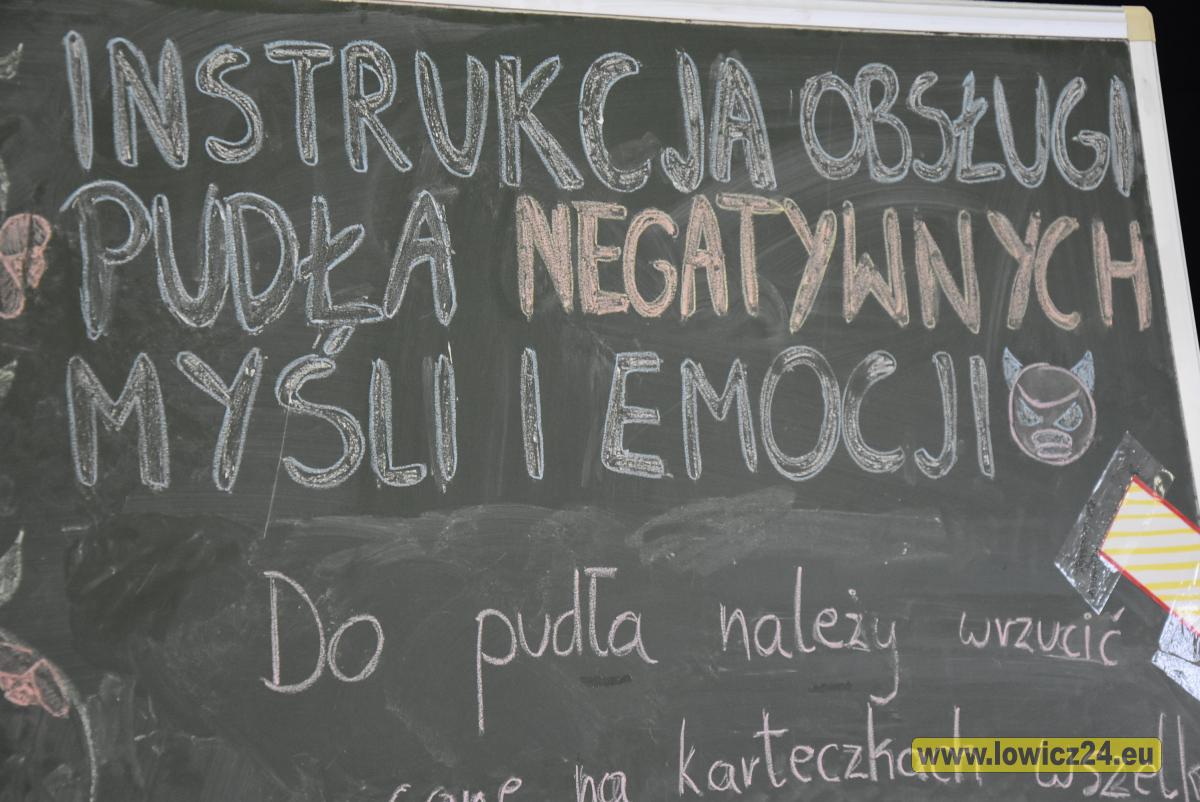 INSTRUKCJA OBSŁUGI
PUDŁA NEGATYWNYCH
MYŚLI I EMOCJI
Do pudła należy wrzucić
na karteczkach
www.lowicz24.eu